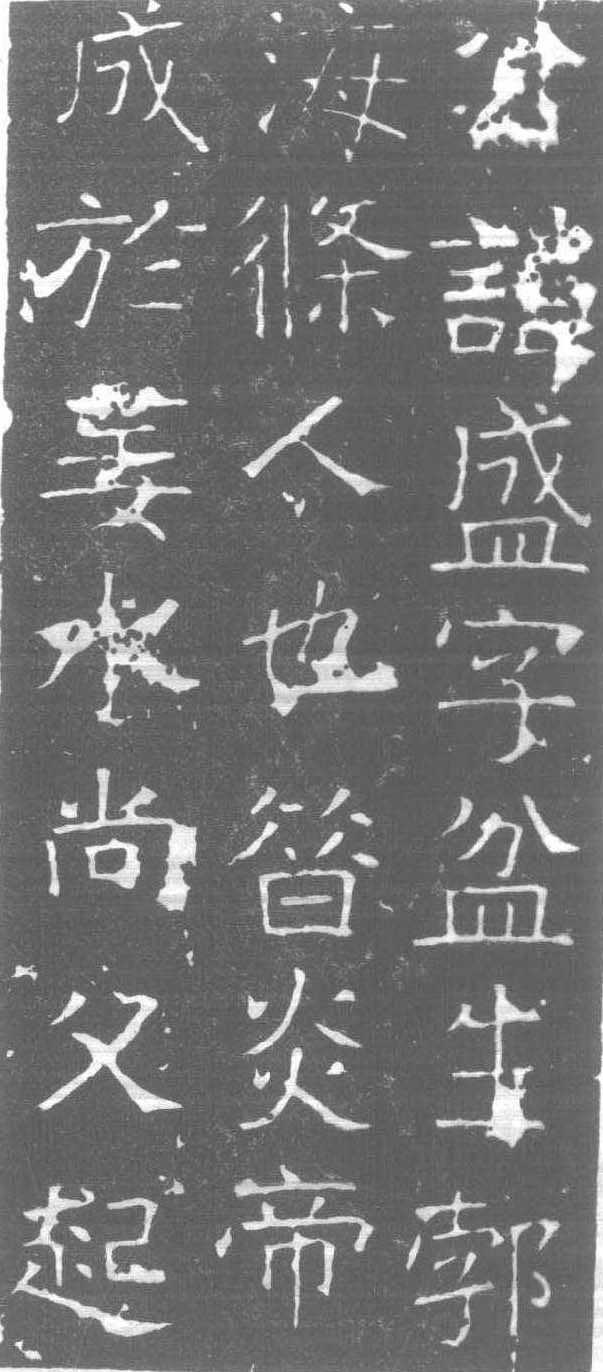 公諱盛字盆生郣
海條人也昔炎帝
成於姜水尚父起